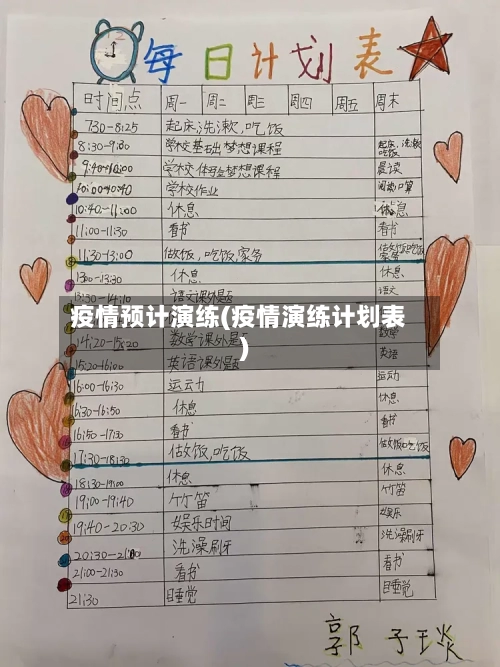 每日计划表
时间点 周一 周二 周三 周四 周五 周末
7:30-8:25 起床,洗漱,吃饭
8:30-9:30 学校基础梦想课程 起床,洗漱 吃饭
9:40-10:00 学校体验梦想课程 晨读
10:00-10:40 学校作业 口算
10:40-11:00 休息 休息
11:00-11:30 看书 看书
11:30-13:00 做饭,吃饭,家务 做饭吃饭 家务
13:00-13:30 休息 休息
13:30-14:10 语文课外题 语文
疫情预计演练(疫情演练计划表
)
14:20-15:20 数学课外题 数学
15:20-16:00 英语课外题 英语
16:00-16:30 运动 运动
16:30-16:50 休息 休息
16:50-17:30 看书 看书
17:30-18:30 做饭,吃饭 做饭吃饭
18:30-19:00 休息 休息
19:00-19:40 竹笛 竹笛
19:40-20:30 娱乐时间 娱乐
20:30-21:00 洗澡刷牙 洗澡刷牙
21:00-21:30 看书 看书
21:30 睡觉 睡觉
郭子琰